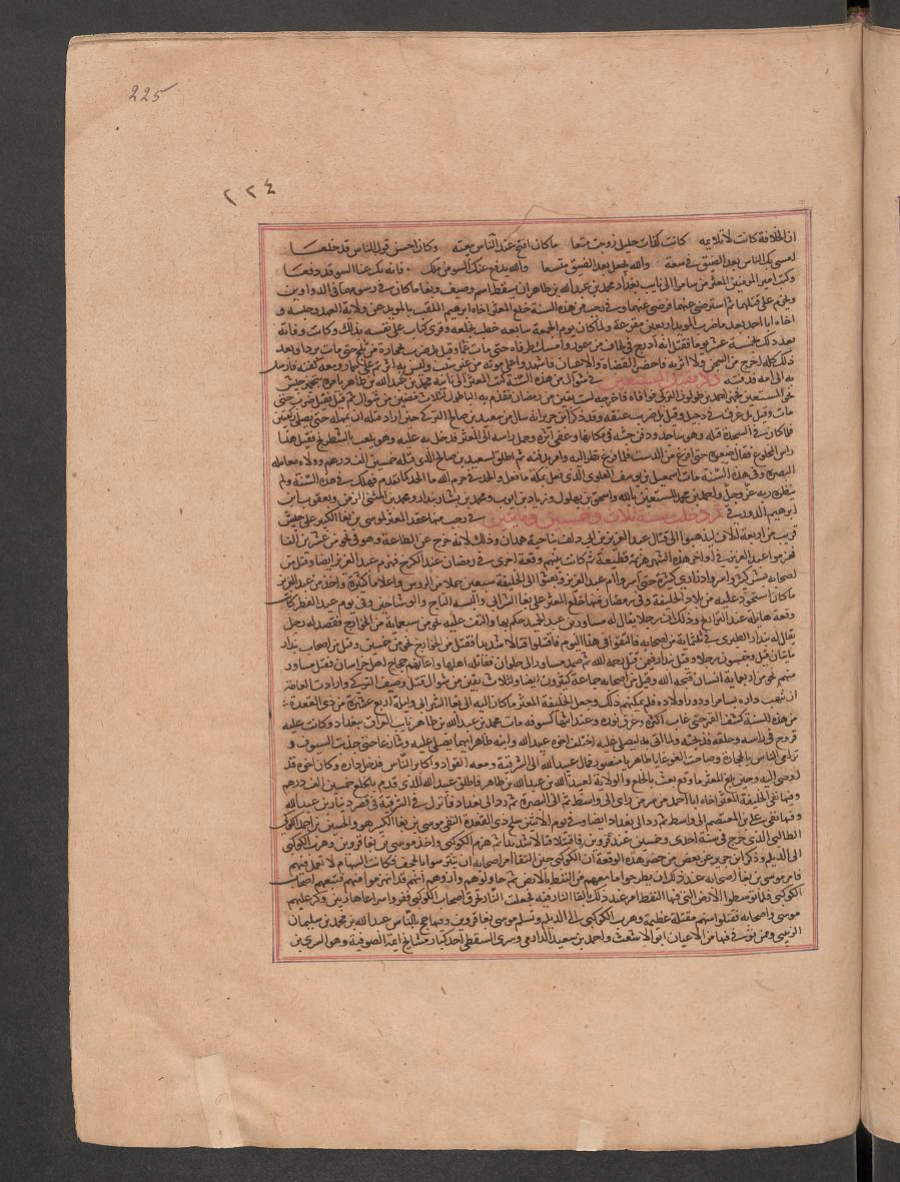 225
٢٢٤
ان الخلافة كانت لا تلايمه كانت كفات حليل زوجت متعا ما كان اقبح عند الناس بيعته وكان احسن قول الناس قد خلعا
امسى بك الناس بعد الضيق في سعة والله يجعل بعد الضيق متسعا والله يدفع عنك السو من ملك فانه بك عنا السو قد دفعا
وكتب امير المومنين المعتز من سامرا الى نايب بغداد محمد بن عبد الله بن طاهر ان يسقط اسم وصيف وبغا وما كان في رسومهما في الدواوين
وعزم على قتلهما ثم استرضي عنهما فرضي عنهما وفي رجب من هذه السنة خلع المعتز اخاه ابرهيم الملقب بالمويد عن ولاية العهد وحبسه و
اخاه ابا احمد بعد ما ضرب المويد اربعين مقرعة ولما كان يوم الجمعة سابعه خطب بخلعه وقرى كتاب على نفسه بذلك وكانت وفاته
بعد ذلك بخمسة عشر يوما فقيل انه ادرج في لحاف من سمور وامسك طرفاه حتى مات غما وقيل بل ضرب بحجارة من ثلج حتى مات بردا وبعد
ذلك كله اخرج من السجن ولا اثر به فاحضر القضاة والاعيان فاشهدوا على موته من غير سبب وليس به اثر ثم على حمار ومعه كفنه فارسل
به الى امه فدفنته ذكر مقتل المستعين في شوال من هذه السنة كتب المعتز الى نايبه محمد بن عبد الله بن طاهر يامره بتجهيز جيش
نحو المستعين فجهز احمد بن طولون التركي فوافاه فاخرجه لست بقين من رمضان فقدم به القاطول لثلاث مضين من شوال ثم قتل فقيل ضرب حتى
مات وقيل بل غرق في دجيل وقيل بل ضربت عنقه وقد ذكر ابن جرير انه سال من سعيد بن صالح التركي حين اراد قتله ان يمهله حتى يصلي ركعتين
فلما كان في السجدة قتله وهو ساجد ودفن جثته في مكانها وعفى اثره وحمل راسه الى المعتز فدخل به عليه وهو يلعب بالشطرنج فقيل هذا
راس المخلوع فقال ضعوه حتى افرغ من الدست فلما فرغ نظر اليه وامر بدفنه ثم اطلق لسعيد بن صالح الذي قتله خمسين الف درهم وولاه معاملة
البصرة وفي هذه السنة مات اسمعيل بن يوسف العلوي الذي فعل بمكة ما فعل والحد في حرم الله ما الحد كما تقدم فهلك في هذه السنة ولم
ينظره ربه عز وجل واحمد بن محمد المستعين بالله واسحق بن بهلول وزياد بن ايوب ومحمد بن بشار بندار ومحمد بن المثنى الزمن ويعقوب بن
ابرهيم الدورقي ثم دخلت سنة ثلاث وخمسين ومائتين في رجب منها عقد المعتز لموسى بن بغا الكبير على جيش
قريب من اربعة الاف ليذهبوا الى قتال عبد العزيز بن ابي دلف بناحية همدان وذلك لانه خرج عن الطاعة وهو في نحو من عشرين الفا
فهزموا عبد العزيز في اواخر هذه الشهر هزيمة فظيعة ثم كانت بينهم وقعة اخرى في رمضان عند الكرج فهزم عبد العزيز ايضا وقتل من
اصحابه بشر كثير واسروا ذراري كثيرة حتى اسروا ام عبد العزيز وبعثوا الى الخليفة سبعين حملا من الروس واعلاما كثيرة واخذ من عبد العزيز
ما كان استحوذ عليه من بلاد الخليفة وفي رمضان منها خلع المعتز على بغا الشرابي والبسه التاج والوشاحين وفي يوم عيد الفطر كانت
وقعة هايلة عند البوازيج وذلك ان رجلا يقال له مساور بن عبد الحميد حكم بها والتف عليه نحو من سبعماية من الخوارج فقصده رجل
يقال له بندار الطبري في ثلثماية من اصحابه فالتقوا في هذا اليوم فاقتتلوا قتالا شديدا فقتل من الخوارج نحو من خمسين وقتل من اصحاب بندار
مايتان قيل وخمسون رجلا وقتل بندار فيمن قتل رحمه الله ثم صمد مساور الى حلوان فقاتله اهلها واعانهم حجاج اهل خراسان فقتل مساور
منهم نحو من اربعماية انسان قبحه الله وقتل من اصحابه جماعة كثيرون ايضا ولثلاث بقين من شوال قتل وصيف التركي وارادت العامة
ان تنهب داره بسامرا ودور اولاده فلم يمكنهم ذلك وجعل الخليفة المعتز ما كان اليه الى بغا الشرابي وليلة اربع عشرة من ذي القعدة
من هذه السنة كسف القمر حتى غاب اكثره وغرق نوره وعند انتها كسوفه مات محمد بن عبد الله بن طاهر نايب العراق ببغداد وكانت عليه
قروح في راسه وحلقه فذبحته ولما اتي به ليصلى عليه اختلف اخوه عبيد الله وابنه طاهر ايهما يصلي عليه وتنازعا حتى جذبت السيوف و
ترامى الناس بالحجارة وصاحت الغوغا يا طاهر يا منصور فمال عبيد الله الى الشرقية ومعه القواد واكابر الناس فدخل داره وكان اخوه قد
اوصى اليه وحين بلغ المعتز ما وقع بعث بالخلع والولاية لعبيد الله بن عبد الله بن طاهر فاطلق عبيد الله للذي قدم بالخلع خمسين الف درهم
وفيها نفى الخليفة المعتز اخاه ابا احمد من سر من راى الى واسط ثم الى البصرة ثم رد الى بغداد فانزل في الشرقية في قصر دينار بن عبد الله
وفيها نفي علي بن المعتصم الى واسط ثم رد الى بغداد ايضا وفي يوم الاثنين سلخ ذي القعدة التقى موسى بن بغا الكبير هو والحسين بن احمد الكوكبي
الطالبي الذي خرج في سنة احدى وخمسين عند قزوين فاقتتلا قتالا شديدا ثم هزم الكوكبي واخذ موسى بن بغا قزوين وهرب الكوكبي
الى الديلم وذكر ابن جرير عن بعض من حضر هذه الوقعة ان الكوكبي حين التقا امر اصحابه ان يتترسوا بالحجف فكانت السهام لا تعمل فيهم
فامر موسى بن بغا اصحابه عند ذلك ان يطرحوا ما معهم من النفط بالارض ثم حاولوهم واروهم انهم قد انهزموا منهم فتبعهم اصحاب
الكوكبي فلما توسطوا الارض التي فيها النفط امر عند ذلك بالقا النار فيه فجعلت النار تحرق اصحاب الكوكبي ففروا سراعا هاربين وكر عليهم
موسى واصحابه فقتلوا منهم مقتلة عظيمة وهرب الكوكبي الى الديلم وتسلم موسى بن بغا قزوين وفيها حج بالناس عبد الله بن محمد بن سليمان
الزينبي وممن توفي فيها من الاعيان ابو الاشعث واحمد بن سعيد الدارمي وسري السقطي احد كبار مشايخ ايمة الصوفية وهو السري بن